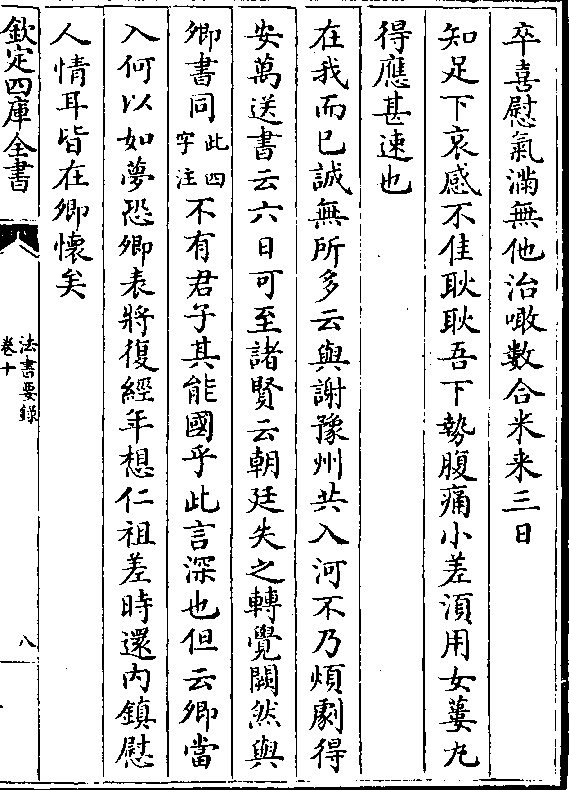 卒喜慰氣滿無他治噉數合米来三日
知足下哀感不佳耿耿吾下勢腹痛小差湏用女蔞丸
得應甚速也
在我而已誠無所多云與謝豫州共入河不乃煩劇得
安萬送書云六日可至諸賢云朝廷失之轉覺闕然與
卿書同此四字注不有君子其能國乎此言深也但云卿當
入何以如夢恐卿表將復經年想仁祖差時還内鎮慰
人情耳皆在卿懷矣
欽定四庫全書
法書要録
卷十
八